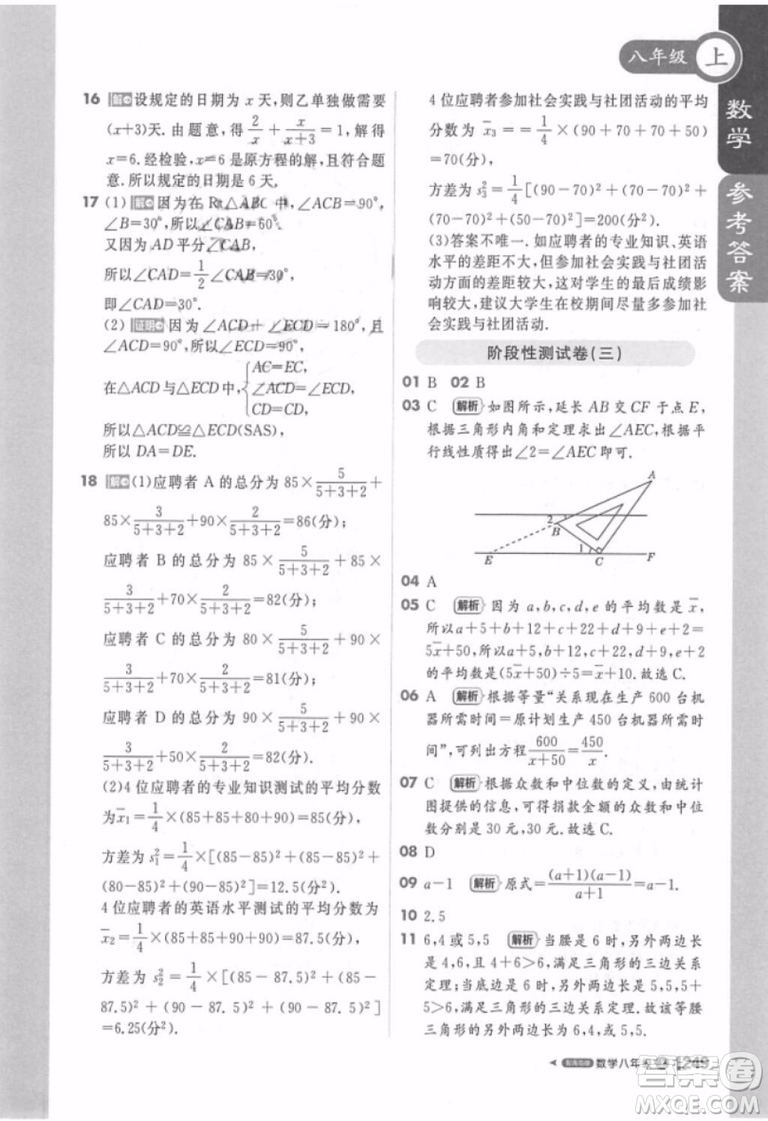 八年级 上
数学
参考答案
16 解 设规定的日期为 x 天，则乙单独做需要
(x+3)天. 由题意，得 2/x + x/(x+3) = 1，解得
x=6. 经检验，x=6 是原方程的解，且符合题
意. 所以规定的日期是 6 天.
17 (1) 解 因为在 Rt△ABC 中，∠ACB=90°，
∠B=30°，所以∠CAB=60°.
又因为 AD 平分∠CAB，
所以∠CAD=1/2∠CAB=30°，
即∠CAD=30°.
(2) 证明 因为∠ACD+∠ECD=180°，且
∠ACD=90°，所以∠ECD=90°，
所以∠ACD=∠ECD.
在△ACD 与△ECD 中，{AC=EC, ∠ACD=∠ECD, CD=CD,
所以△ACD≌△ECD(SAS)，
所以 DA=DE.
18 解 (1)应聘者 A 的总分为 85×5/(5+3+2)+
85×3/(5+3+2)+90×2/(5+3+2)=86(分)；
应聘者 B 的总分为 85×5/(5+3+2)+85×
3/(5+3+2)+70×2/(5+3+2)=82(分)；
应聘者 C 的总分为 80×5/(5+3+2)+90×
3/(5+3+2)+70×2/(5+3+2)=81(分)；
应聘者 D 的总分为 90×5/(5+3+2)+90×
3/(5+3+2)+50×2/(5+3+2)=82(分).
(2)4 位应聘者的专业知识测试的平均分数
为x̄₁=1/4×(85+85+80+90)=85(分)，
方差为 s₁²=1/4×[(85-85)²+(85-85)²+
(80-85)²+(90-85)²]=12.5(分²)；
4 位应聘者的英语水平测试的平均分数为
x̄₂=1/4×(85+85+90+90)=87.5(分)，
方差为 s₂²=1/4×[(85-87.5)²+(85-
87.5)²+(90-87.5)²+(90-87.5)²]
=6.25(分²)；
4 位应聘者参加社会实践与社团活动的平均
分数为 x̄₃=1/4×(90+70+70+50)
=70(分)，
方差为 s₃²=1/4×[(90-70)²+(70-70)²+
(70-70)²+(50-70)²]=200(分²).
(3)答案不唯一. 如应聘者的专业知识、英语
水平的差距不大，但参加社会实践与社团活
动的差距较大，这对学生的最后成绩影响
较大，建议大学生在校期间尽量多参加社
会实践与社团活动.
阶段性测试卷(三)
01 B 02 B
03 C 解析 如图所示，延长 AB 交 CF 于点 E，
根据三角形内角和定理求出∠AEC，再根据平
行线性质得出∠2=∠AEC=15°. 故选 C.
A
2
B
1
E C F
04 A
05 C 解析 因为 a,b,c,d,e 的平均数为 x̄，
所以 a+5+b+12+c+22+d+9+e+2=
5x̄+50，所以 a+5,b+12,c+22,d+9,e+2
的平均数是(5x̄+50)÷5=x̄+10. 故选 C.
06 A 解析 根据等量“关系现在生产 600 台机
器所需时间=原计划生产 450 台机器所需时
间”，可列出方程 600/(x+50)=450/x.
07 C 解析 根据众数和中位数的定义，由统计
图提供的信息，可得捐款金额的众数和中位
数分别是 30 元，30 元. 故选 C.
08 D
09 a-1 解析 原式=(a+1)(a-1)/(a+1)=a-1.
10 2.5
11 6,4 或 5,5 解析 当腰是 6 时，另外两边长
是 4,6，满足三角形的三边关系
定理；当底边是 6 时，另外两边长是 5,5,5+5
>6，满足三角形的三边关系定理，
所以该等腰三角形的另外两边为 6,4 或 5,5.
数学八年
答案圈
MXQE.COM